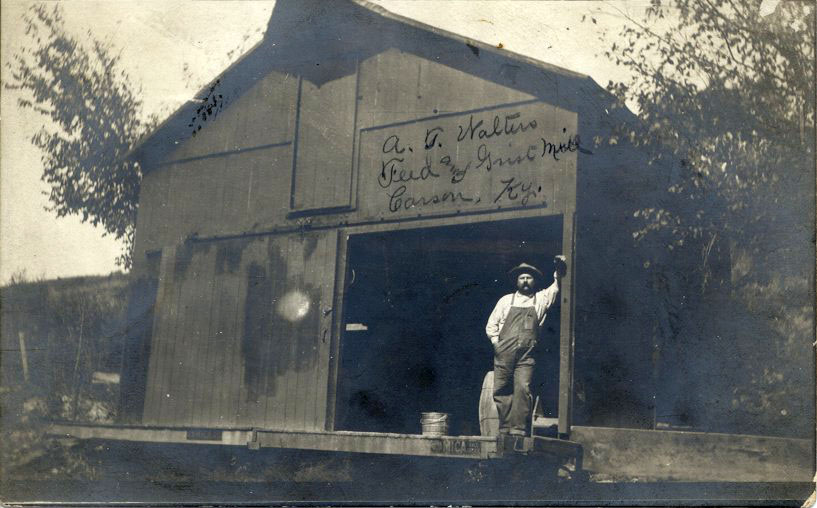 A. T. Walters
Feed and Grist Mill
Carson, Ky.